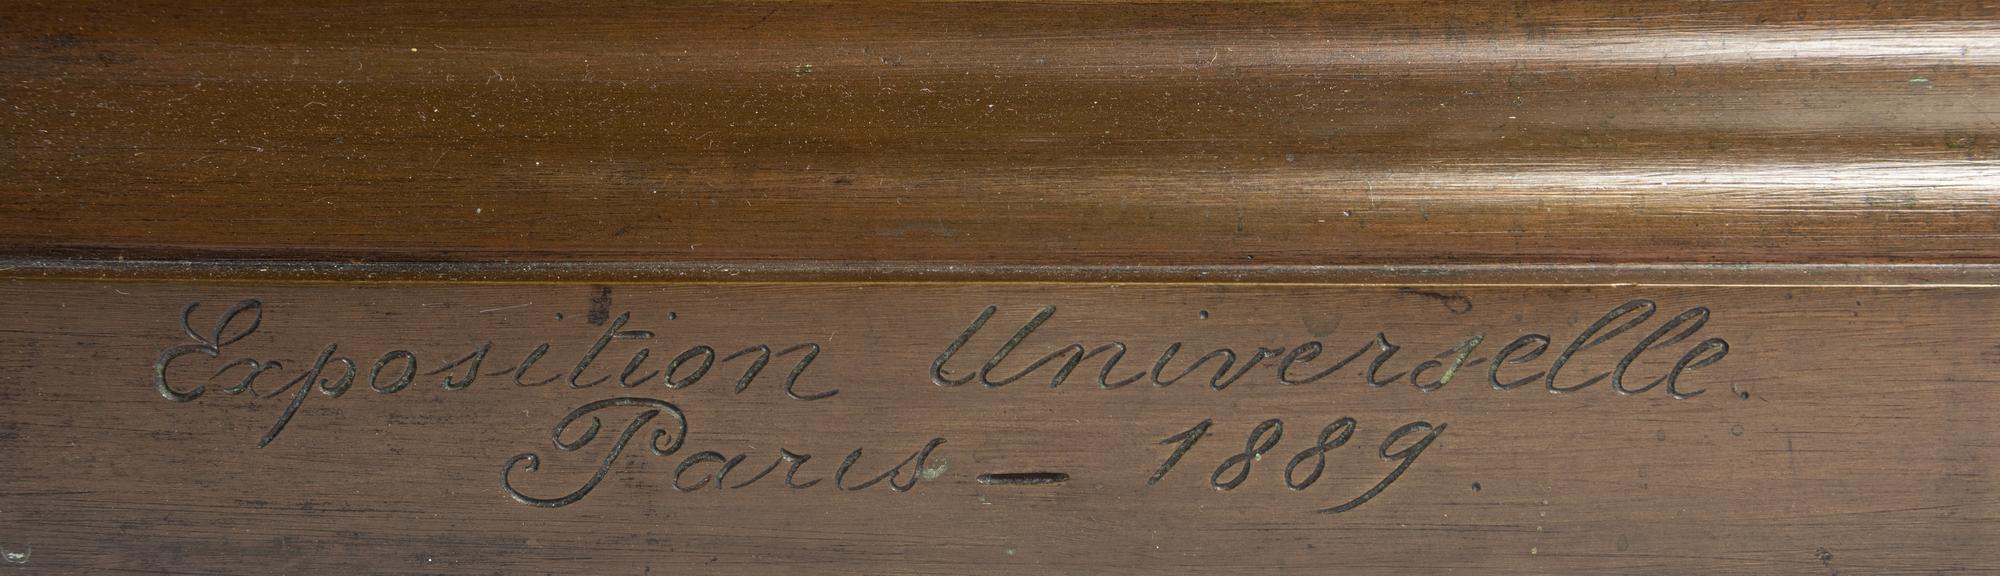 Exposition Universelle.
Paris — 1889.